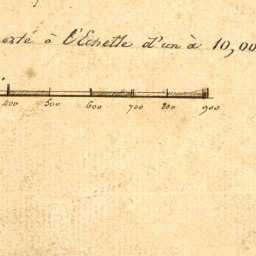 à l'Echelle d'un à 10,00
400 500 600 700 800 900